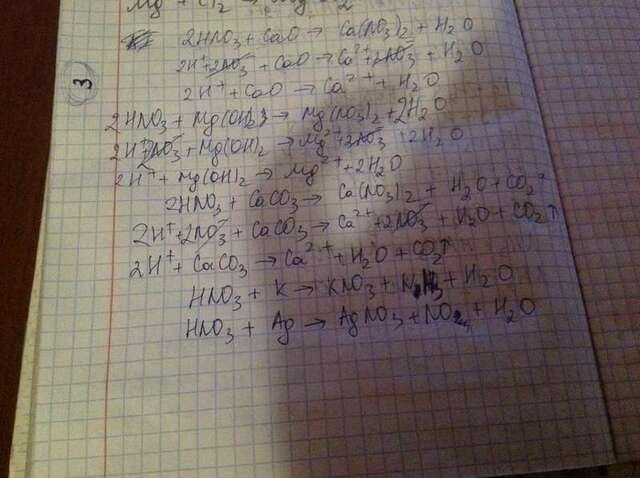 Mg + Cl₂ → Mg
2HNO₃ + CaO → Ca(NO₃)₂ + H₂O
2H⁺ + 2NO₃⁻ + CaO → Ca²⁺ + 2NO₃⁻ + H₂O
3
2H⁺ + CaO → Ca²⁺ + H₂O
2HNO₃ + Mg(OH)₂ → Mg(NO₃)₂ + 2H₂O
2H⁺ 2NO₃⁻ + Mg(OH)₂ → Mg²⁺ + 2NO₃⁻ + 2H₂O
2H⁺ + Mg(OH)₂ → Mg²⁺ + 2H₂O
2HNO₃ + CaCO₃ → Ca(NO₃)₂ + H₂O + CO₂↑
2H⁺ + 2NO₃⁻ + CaCO₃ → Ca²⁺ + 2NO₃⁻ + H₂O + CO₂↑
2H⁺ + CaCO₃ → Ca²⁺ + H₂O + CO₂↑
HNO₃ + K → KNO₃ + + H₂O
HNO₃ + Ag → AgNO₃ + NO₂ + H₂O